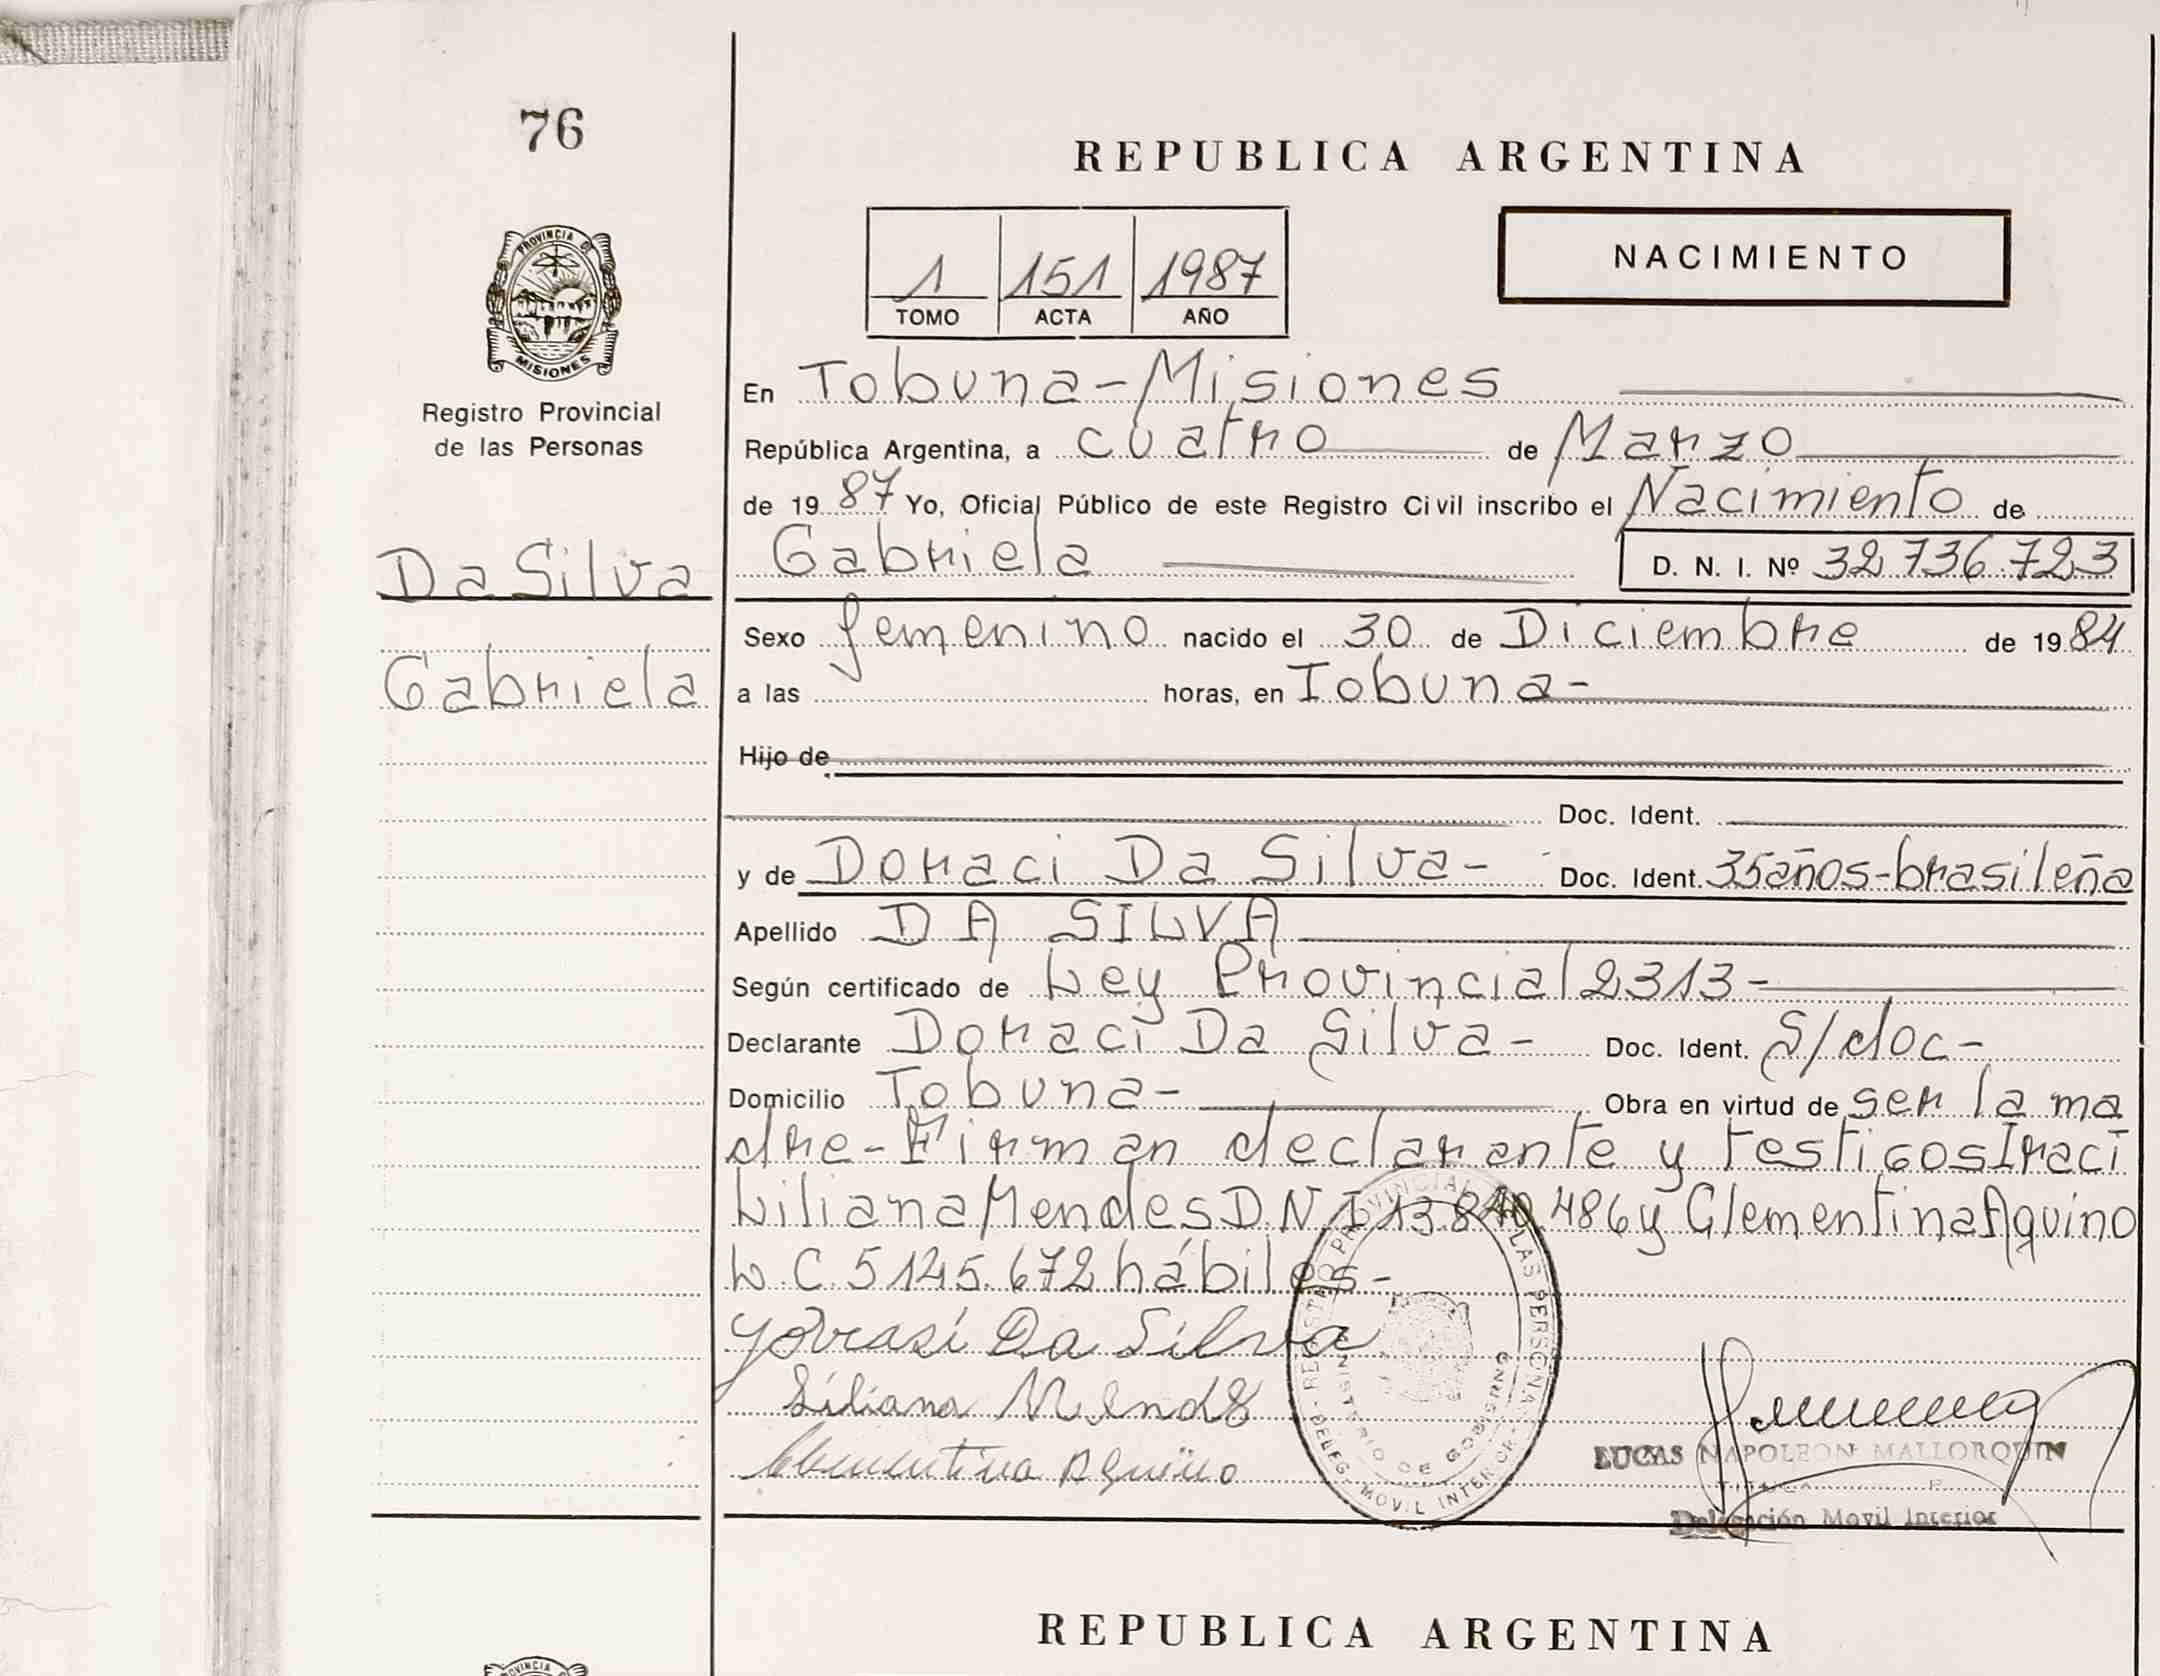 76
REPUBLICA ARGENTINA
NACIMIENTO
1 151 1987
TOMO ACTA AÑO
PROVINCIA DE
MISIONES
Registro Provincial
de las Personas
Da Silva
Gabriela
En Tobuna-Misiones
República Argentina, a cuatro de Marzo
de 1987 Yo, Oficial Público de este Registro Civil inscribo el Nacimiento de
Gabriela D. N. I. Nº 32 736.723
Sexo femenino nacido el 30 de Diciembre de 1984
a las horas, en Tobuna-
Hijo de
Doc. Ident.
y de Doraci Da Silva- Doc. Ident. 35años-brasileña
Apellido DA SILVA
Según certificado de Ley Provincial 2313-
Declarante Doraci Da Silva- Doc. Ident. S/doc-
Domicilio Tobuna- Obra en virtud de ser la ma
dre-Firman declarante y testigos Iraci
Liliana Mendes D.N.I 13.840.486 y Clementina Aquino
L.C. 5145.672 hábiles-
Da Silva
Liliana Mendes
Clementina Aquino
REGISTRO PROVINCIAL DE LAS PERSONAS
MINISTERIO DE GOBIERNO
DELEG. MOVIL INTERIOR
LUCAS NAPOLEON MALLORQUIN
Delegación Movil Interior
REPUBLICA ARGENTINA
PROVINCIA